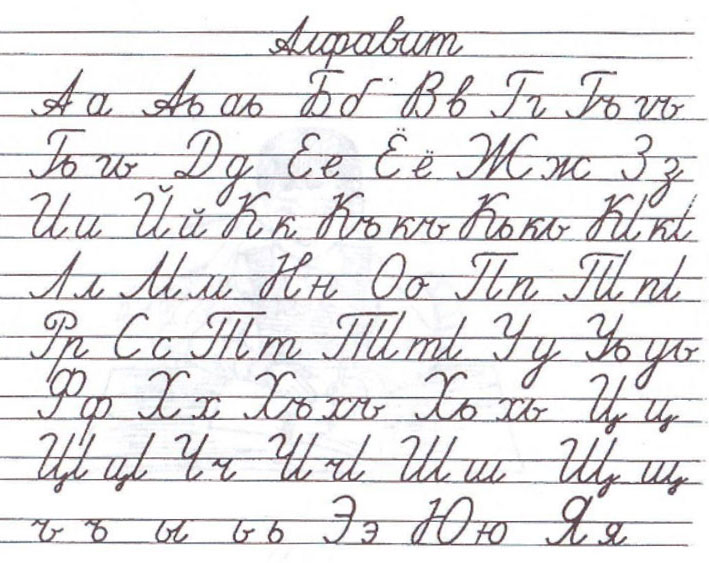 Алфавит
А а Аь аь Б б В в Г г Гъ гъ
Гь гь Д д Е е Ё ё Ж ж З з
И и Й й К к Къ къ Кь кь КӀ кӀ
Л л М м Н н О о П п ПӀ пӀ
Р р С с Т т ТӀ тӀ У у Уь уь
Ф ф Х х Хъ хъ Хь хь Ц ц
ЦӀ цӀ Ч ч ЧӀ чӀ Ш ш Щ щ
ъ ъ ы ь ь Э э Ю ю Я я